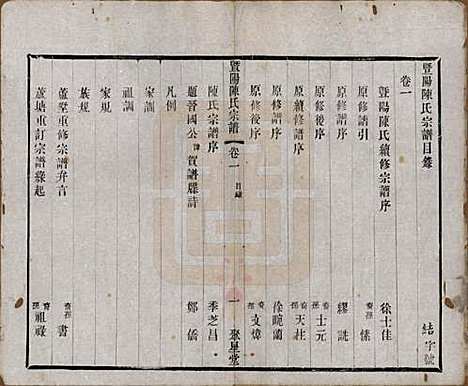 暨陽陳氏宗譜目錄
卷一
結字號
暨陽陳氏續修宗譜序 徐士佳
原修譜引 裔孫 愫
原修譜序 繆詵
原修後序 裔孫 士元
原續修序 裔孫 天柱
原修譜序 徐畹蘭
原修後序 裔孫 文煒
暨陽陳氏宗譜 卷一 目錄 一 聚星堂
陳氏宗譜序 季芝昌
題晉國公諱賀譜牒詩 鄭僑
凡例
家訓
祖訓
家規
族規
蘆墅重修宗譜弁言 裔孫 書
蘆塘重訂宗譜緣起 裔孫 祖祿